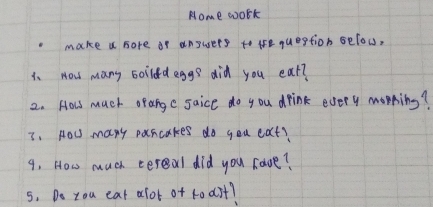 Home work
• make a note of answers to the question below.
1. How many boiled eggs did you eat?
2. How much orange juice do you drink every morning?
3. How many pancakes do you eat?
4. How much cereal did you have?
5. Do you eat alot of toast?